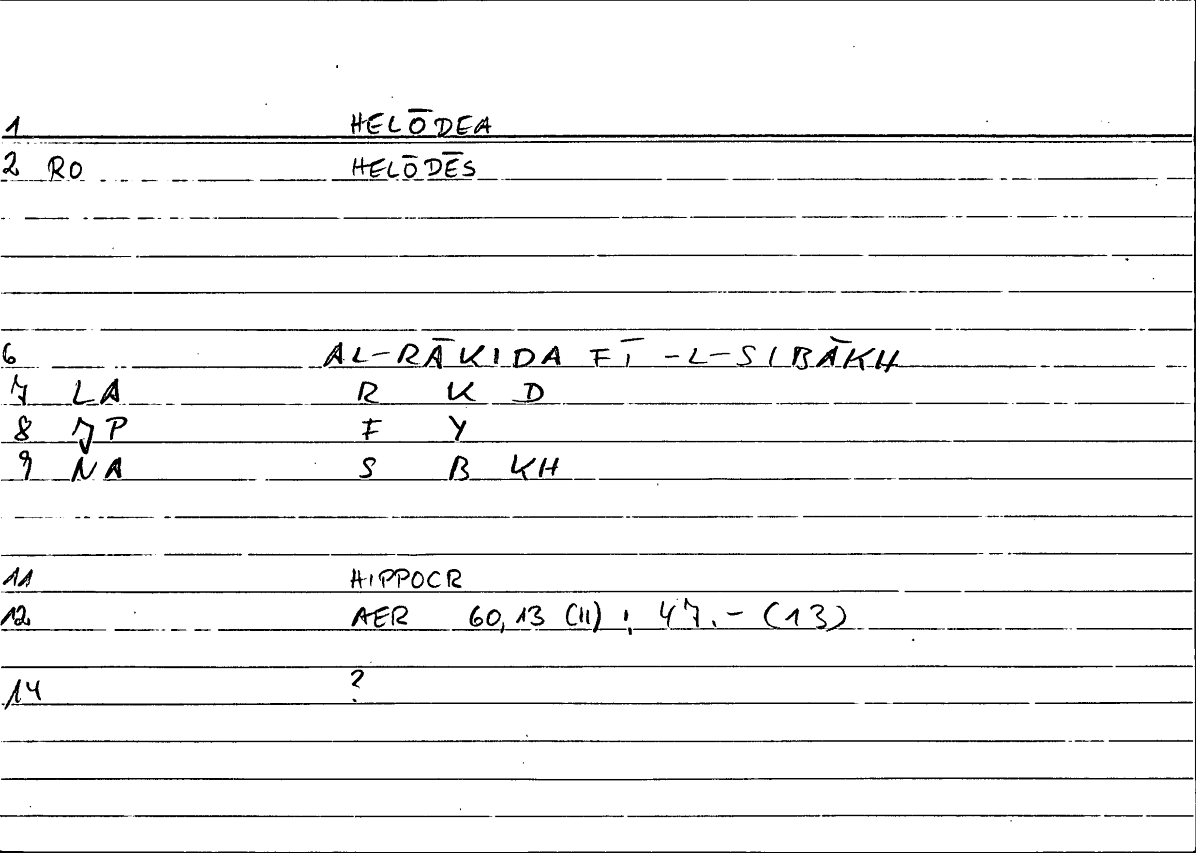 1 HELŌDEA
2 RO HELŌDĒS
6 AL-RĀKIDA FĪ -L-SIBĀKH
7 LA R K D
8 JP F Y
9 NA S B KH
11 HIPPOCR
12 AER 60,13 (11) ; 47.- (13)
14 ?